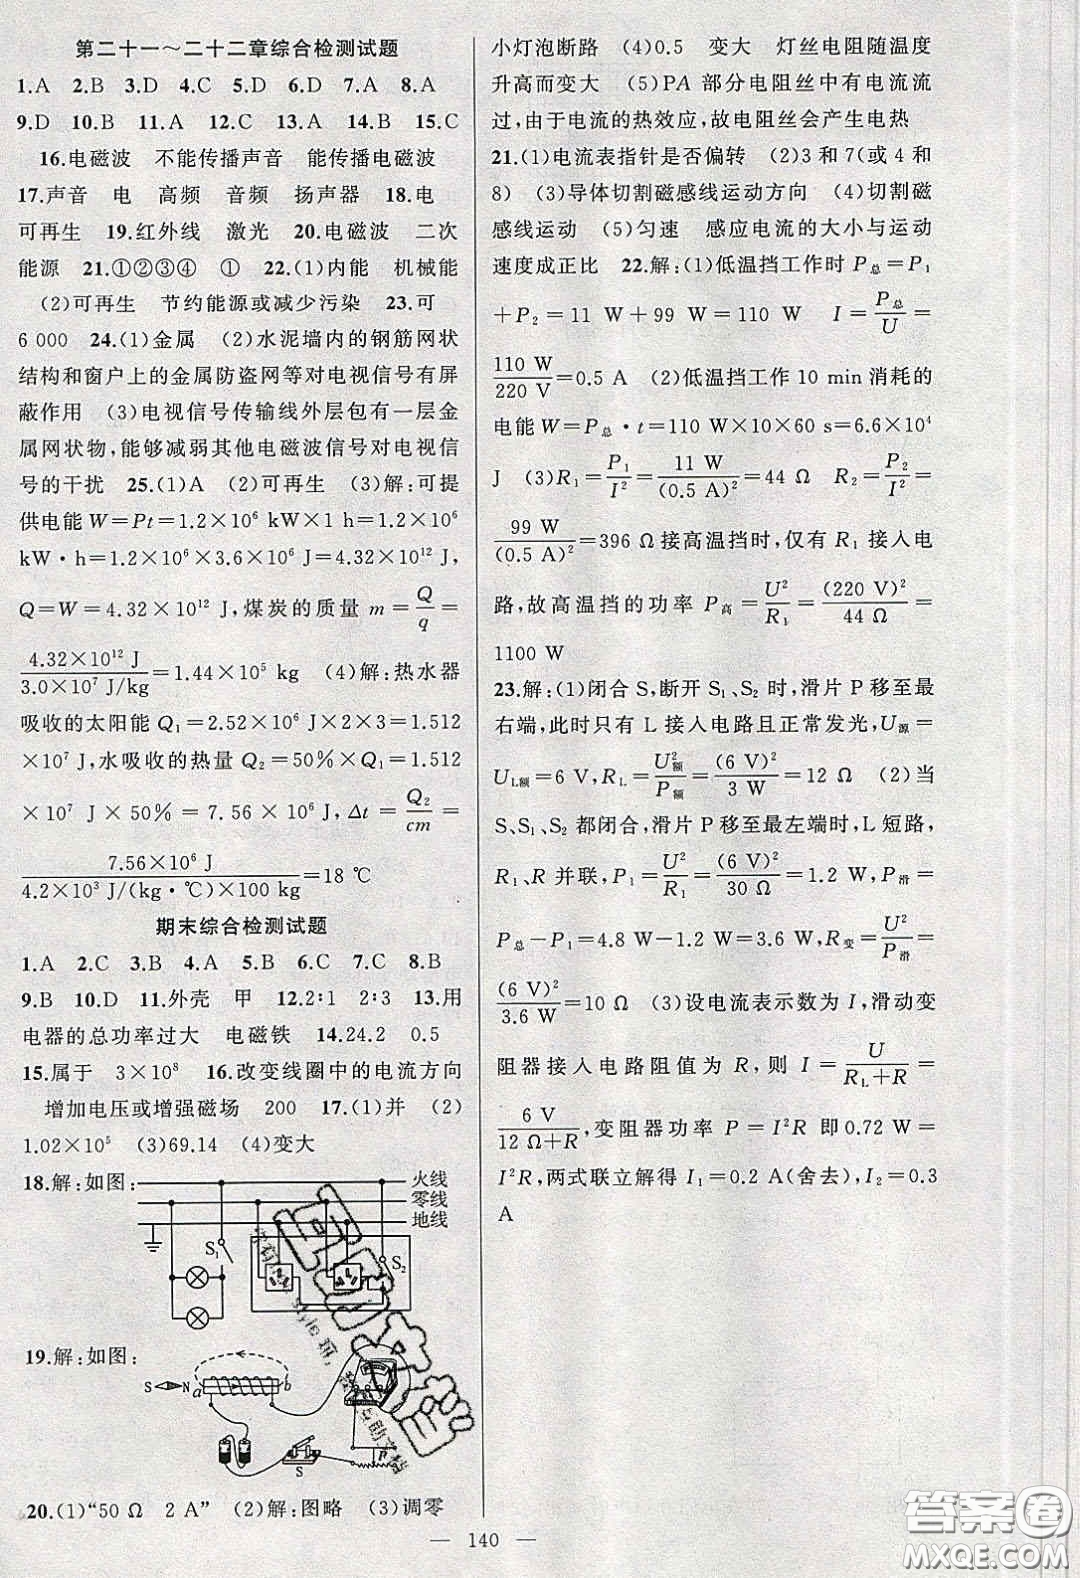 第二十一～二十二章综合检测试题
1.A 2.B 3.D 4.C 5.D 6.B 7.A 8.A
9.D 10.B 11.A 12.C 13.A 14.B 15.C
16.电磁波 不能传播声音 能传播电磁波
17.声音 电 高频 音频 扬声器 18.电
可再生 19.红外线 激光 20.电磁波 二次
能源 21.①②③④ ① 22.(1)内能 机械能
(2)可再生 节约能源或减少污染 23.可
6 000 24.(1)金属 (2)水泥墙内的钢筋网状
结构和窗户上的金属防盗网等对电视信号有屏
蔽作用 (3)电视信号传输线外层包有一层金
属网状物,能够减弱其他电磁波信号对电视信
号的干扰 25.(1)A (2)可再生 (3)解:可提
供电能W=Pt=1.2×10⁶ kW×1 h=1.2×10⁶
kW·h=1.2×10⁶×3.6×10⁶ J=4.32×10¹² J,
Q=W=4.32×10¹² J,煤炭的质量 m=Q/q=
4.32×10¹² J/3.0×10⁷ J/kg=1.44×10⁵ kg (4)解:热水器
吸收的太阳能 Q₁=2.52×10⁶ J×2×3=1.512
×10⁷ J,水吸收的热量 Q₂=50%×Q₁=1.512
×10⁷ J×50%=7.56×10⁶ J,Δt=Q₂/cm=
7.56×10⁶ J/4.2×10³ J/(kg·℃)×100 kg=18 ℃
期末综合检测试题
1.A 2.C 3.B 4.A 5.B 6.C 7.C 8.B
9.B 10.D 11.外壳 甲 12.2∶1 2∶3 13.用
电器的总功率过大 电磁铁 14.24.2 0.5
15.属于 3×10⁸ 16.改变线圈中的电流方向
增加电压或增强磁场 200 17.(1)并 (2)
1.02×10⁵ (3)69.14 (4)变大
18.解:如图:
火线
零线
地线
S₁
S₂
19.解:如图:
S N a b
P
S
20.(1)“50 Ω 2 A” (2)解:图略 (3)调零
小灯泡断路 (4)0.5 变大 灯丝电阻随温度
升高而变大 (5)PA 部分电阻丝中有电流流
过,由于电流的热效应,故电阻丝会产生电热
21.(1)电流表指针是否偏转 (2)3 和 7(或 4 和
8) (3)导体切割磁感线运动方向 (4)切割磁
感线运动 (5)匀速 感应电流的大小与运动
速度成正比 22.解:(1)低温挡工作时 P总=P₁
+P₂=11 W+99 W=110 W I=P总/U=
110 W/220 V=0.5 A (2)低温挡工作 10 min 消耗的
电能 W=P总·t=110 W×10×60 s=6.6×10⁴
J (3)R₁=P₁/I²=11 W/(0.5 A)²=44 Ω R₂=P₂/I²=
99 W/(0.5 A)²=396 Ω 接高温挡时,仅有 R₁ 接入电
路,故高温挡的功率 P高=U²/R₁=(220 V)²/44 Ω=
1100 W
23.解:(1)闭合 S,断开 S₁、S₂ 时,滑片 P 移至最
右端,此时只有 L 接入电路且正常发光,U源=
U L额=6 V,R L=U²额/P额=(6 V)²/3 W=12 Ω (2)当
S、S₁、S₂ 都闭合,滑片 P 移至最左端时,L 短路,
R₁、R 并联,P₁=U²/R₁=(6 V)²/30 Ω=1.2 W,P滑=
P总-P₁=4.8 W-1.2 W=3.6 W,R变=U²/P滑=
(6 V)²/3.6 W=10 Ω (3)设电流表示数为 I,滑动变
阻器接入电路阻值为 R,则 I=U/R L+R=
6 V/12 Ω+R,变阻器功率 P=I²R 即 0.72 W=
I²R,两式联立解得 I₁=0.2 A(舍去),I₂=0.3
A
140
答案圈
MXQE.COM